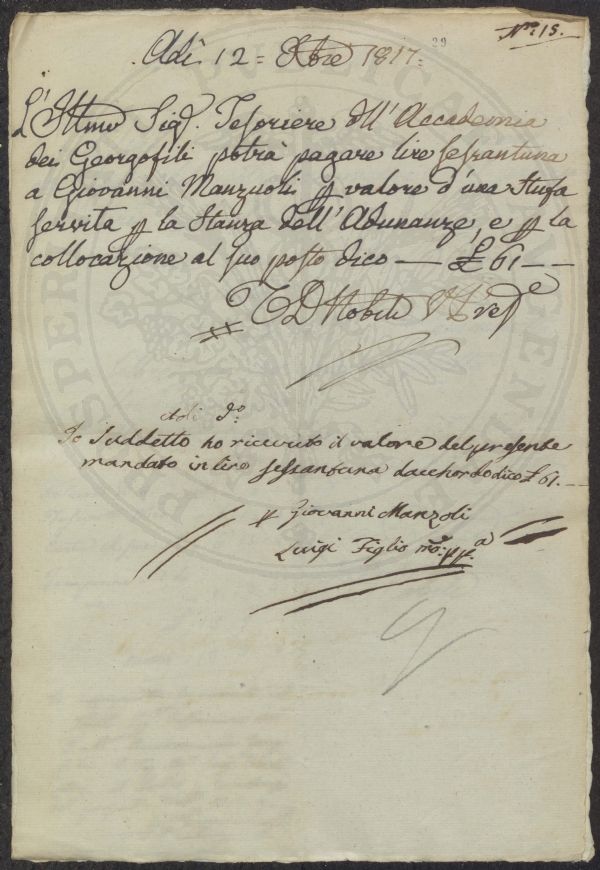 Nro: 15.
29
Adì 12 = Xbre 1817:
L'Illmo Sigr. Tesoriere dell'Accademia
dei Georgofili potrà pagare lire sessantuna
a Giovanni Manzuoli p valore d'una Stufa
servita p la Stanza dell'Adunanze, e p la
collocazione al suo posto dico — £ 61 —
Adì do
Io Suddetto ho ricevuto il valore del presente
mandato in lire sessantuna dacchordo dico £ 61. —
p Giovanni Manzoli
Luigi Figlio mo: pp.a
PROSPERITÀ PUBBLICA